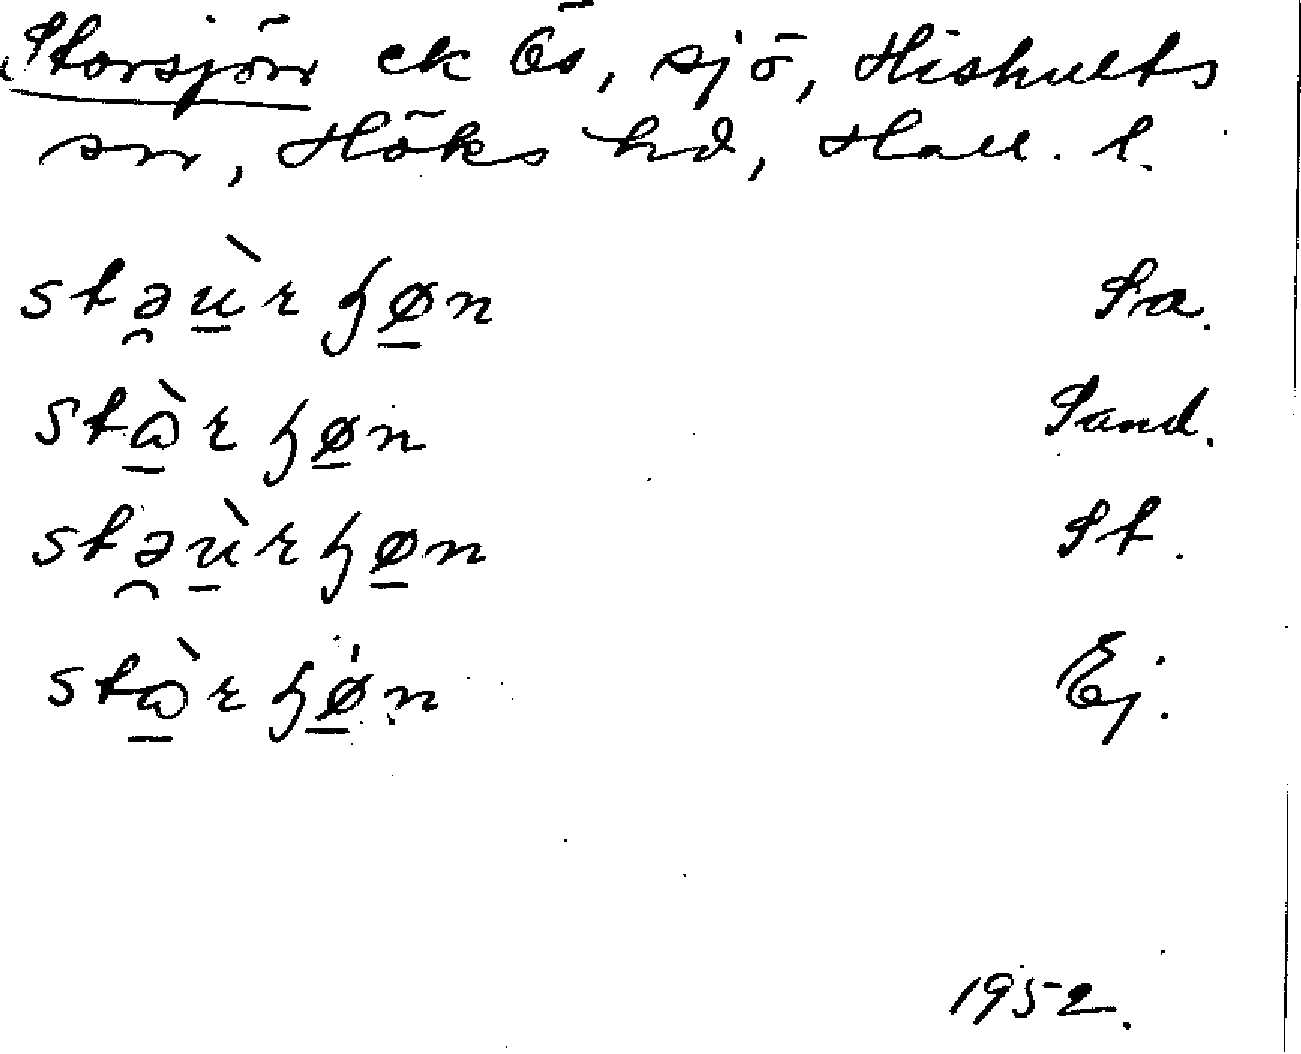 Storsjön ek Ös, sjö, Hishults
sn, Höks hd, Hall. l.
stə̯ù̲rɧø̲n Sa.
stà̲rɧø̲n Sand.
stə̯ù̲rɧø̲n St.
stà̲rɧø̲̍n Ej.
1952.